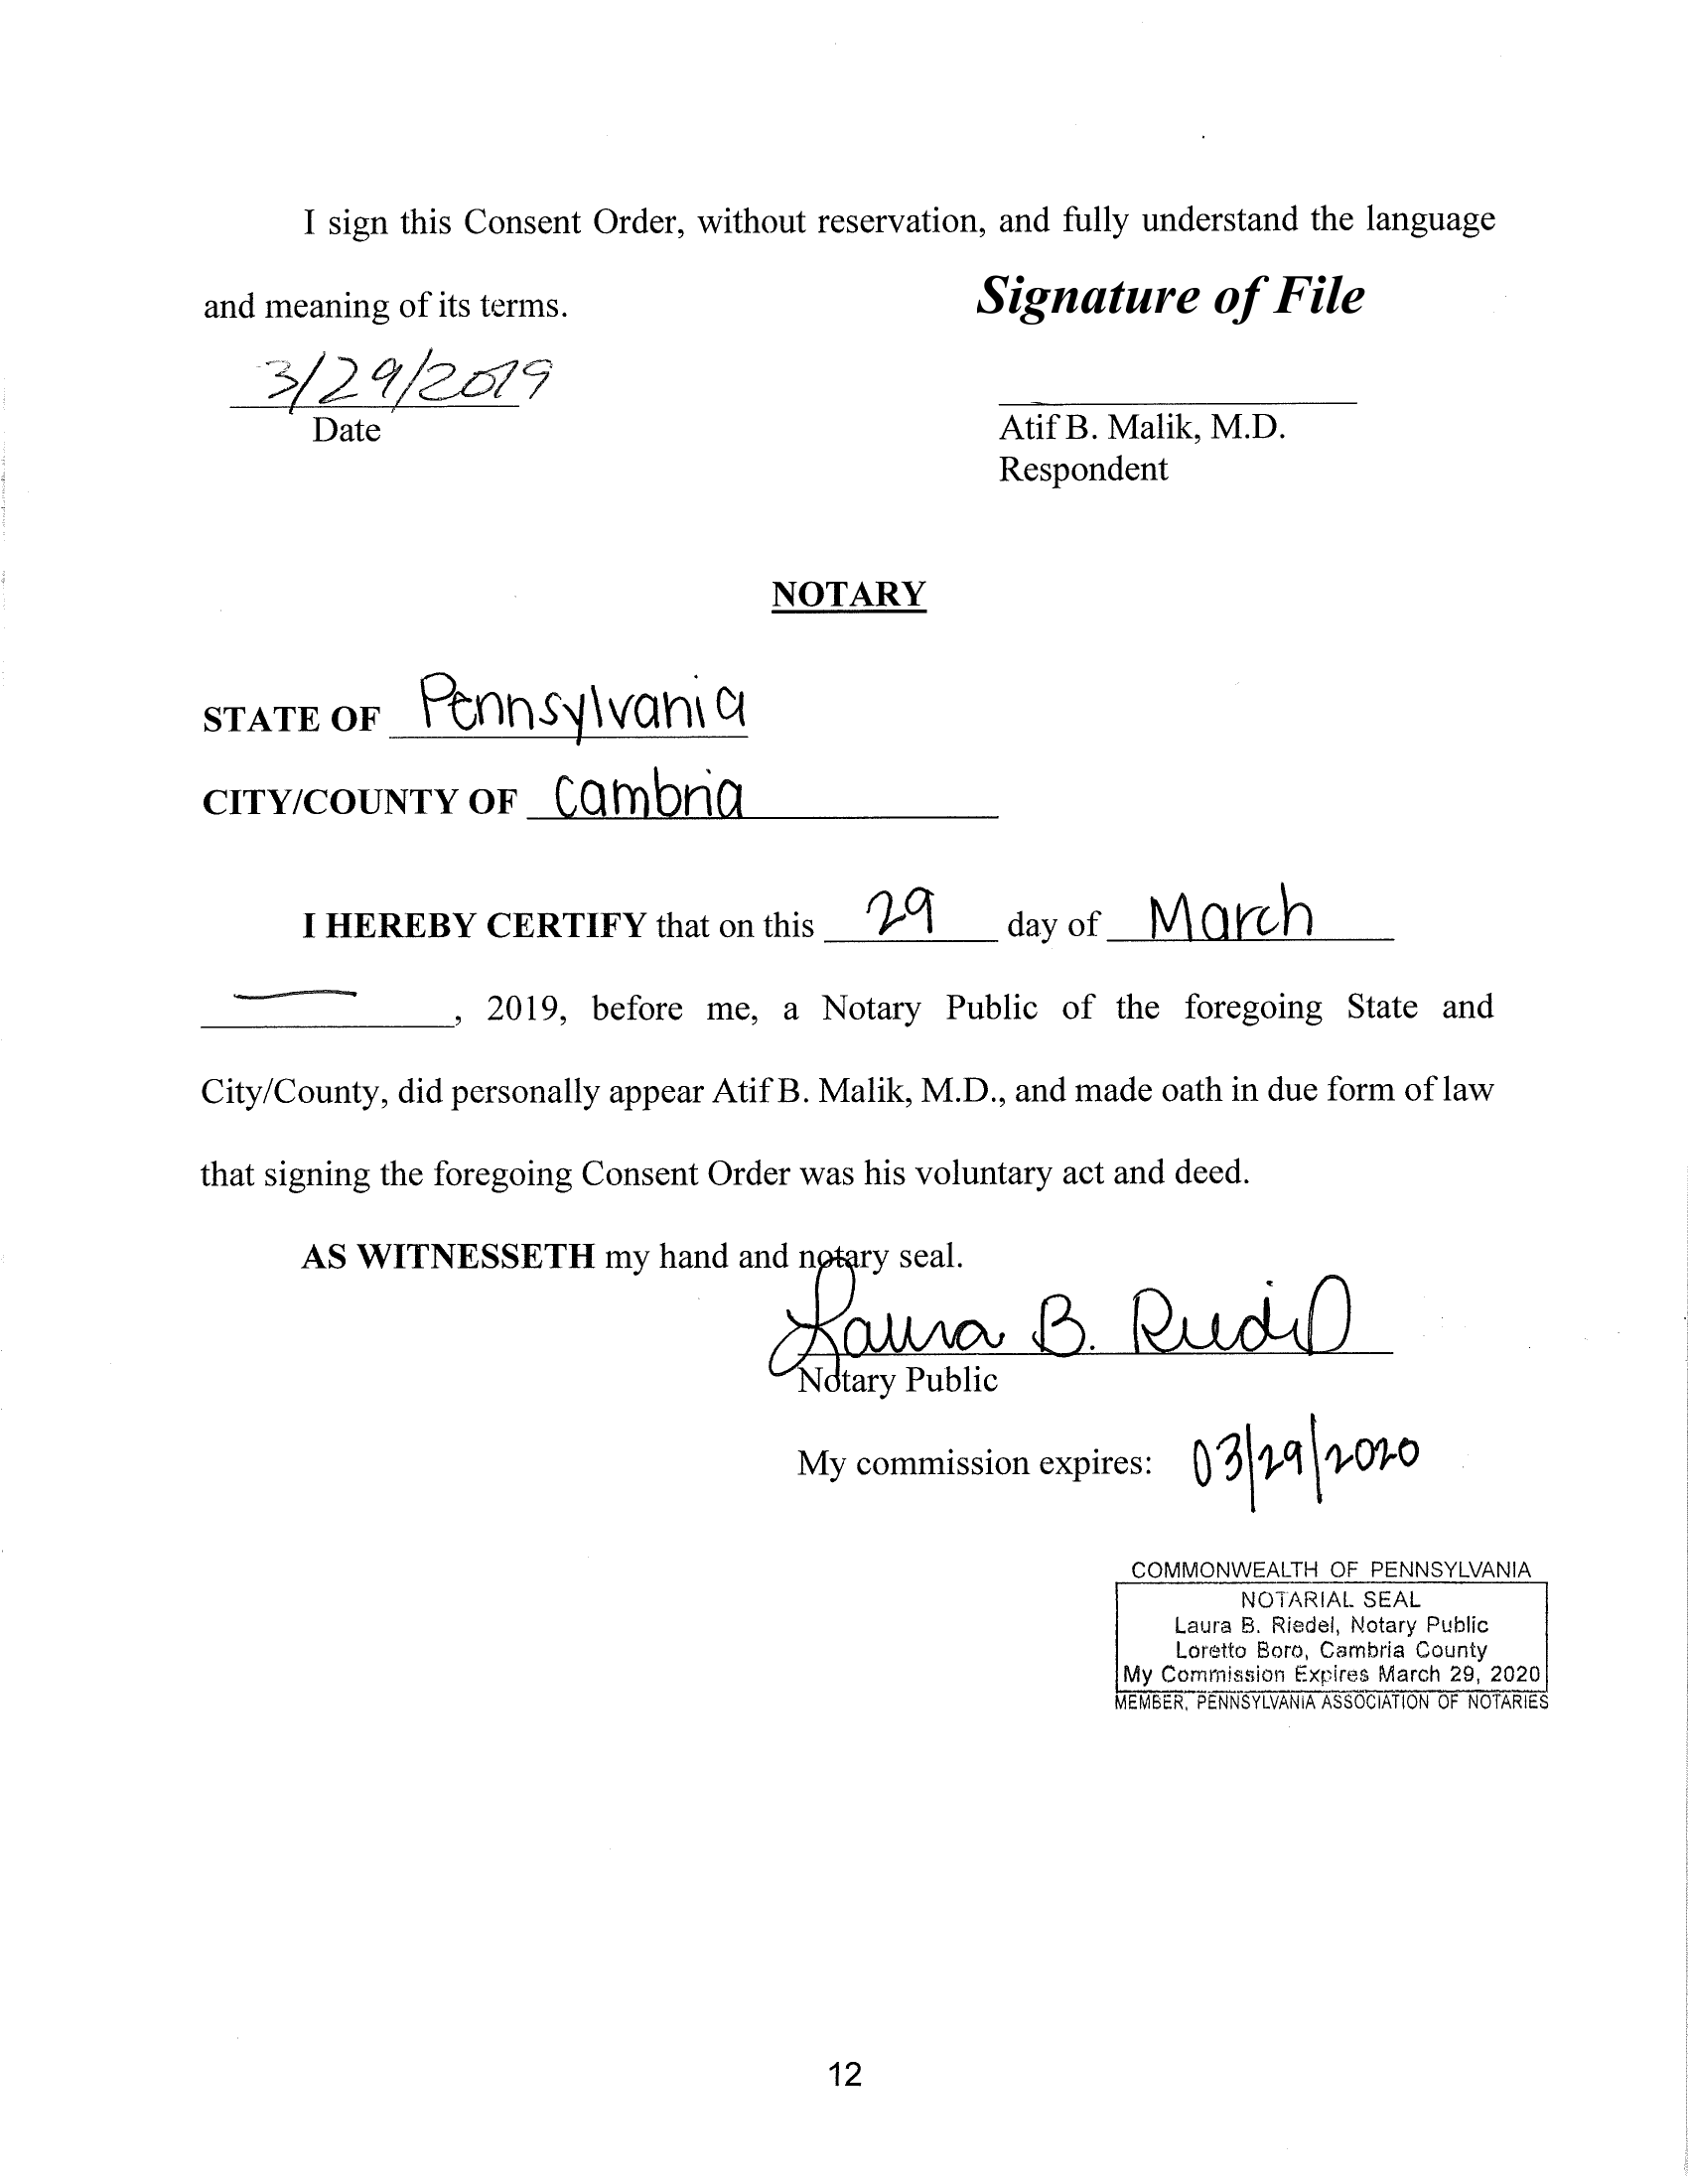 I sign this Consent Order, without reservation, and fully understand the language
and meaning of its terms.
Signature of File
3/29/2019
Date
Atif B. Malik, M.D.
Respondent
NOTARY
STATE OF Pennsylvania
CITY/COUNTY OF Cambria
I HEREBY CERTIFY that on this 29 day of March
, 2019, before me, a Notary Public of the foregoing State and
City/County, did personally appear Atif B. Malik, M.D., and made oath in due form of law
that signing the foregoing Consent Order was his voluntary act and deed.
AS WITNESSETH my hand and notary seal.
Laura B. Riedel
Notary Public
My commission expires: 03/29/2020
COMMONWEALTH OF PENNSYLVANIA
NOTARIAL SEAL
Laura B. Riedel, Notary Public
Loretto Boro, Cambria County
My Commission Expires March 29, 2020
MEMBER, PENNSYLVANIA ASSOCIATION OF NOTARIES
12